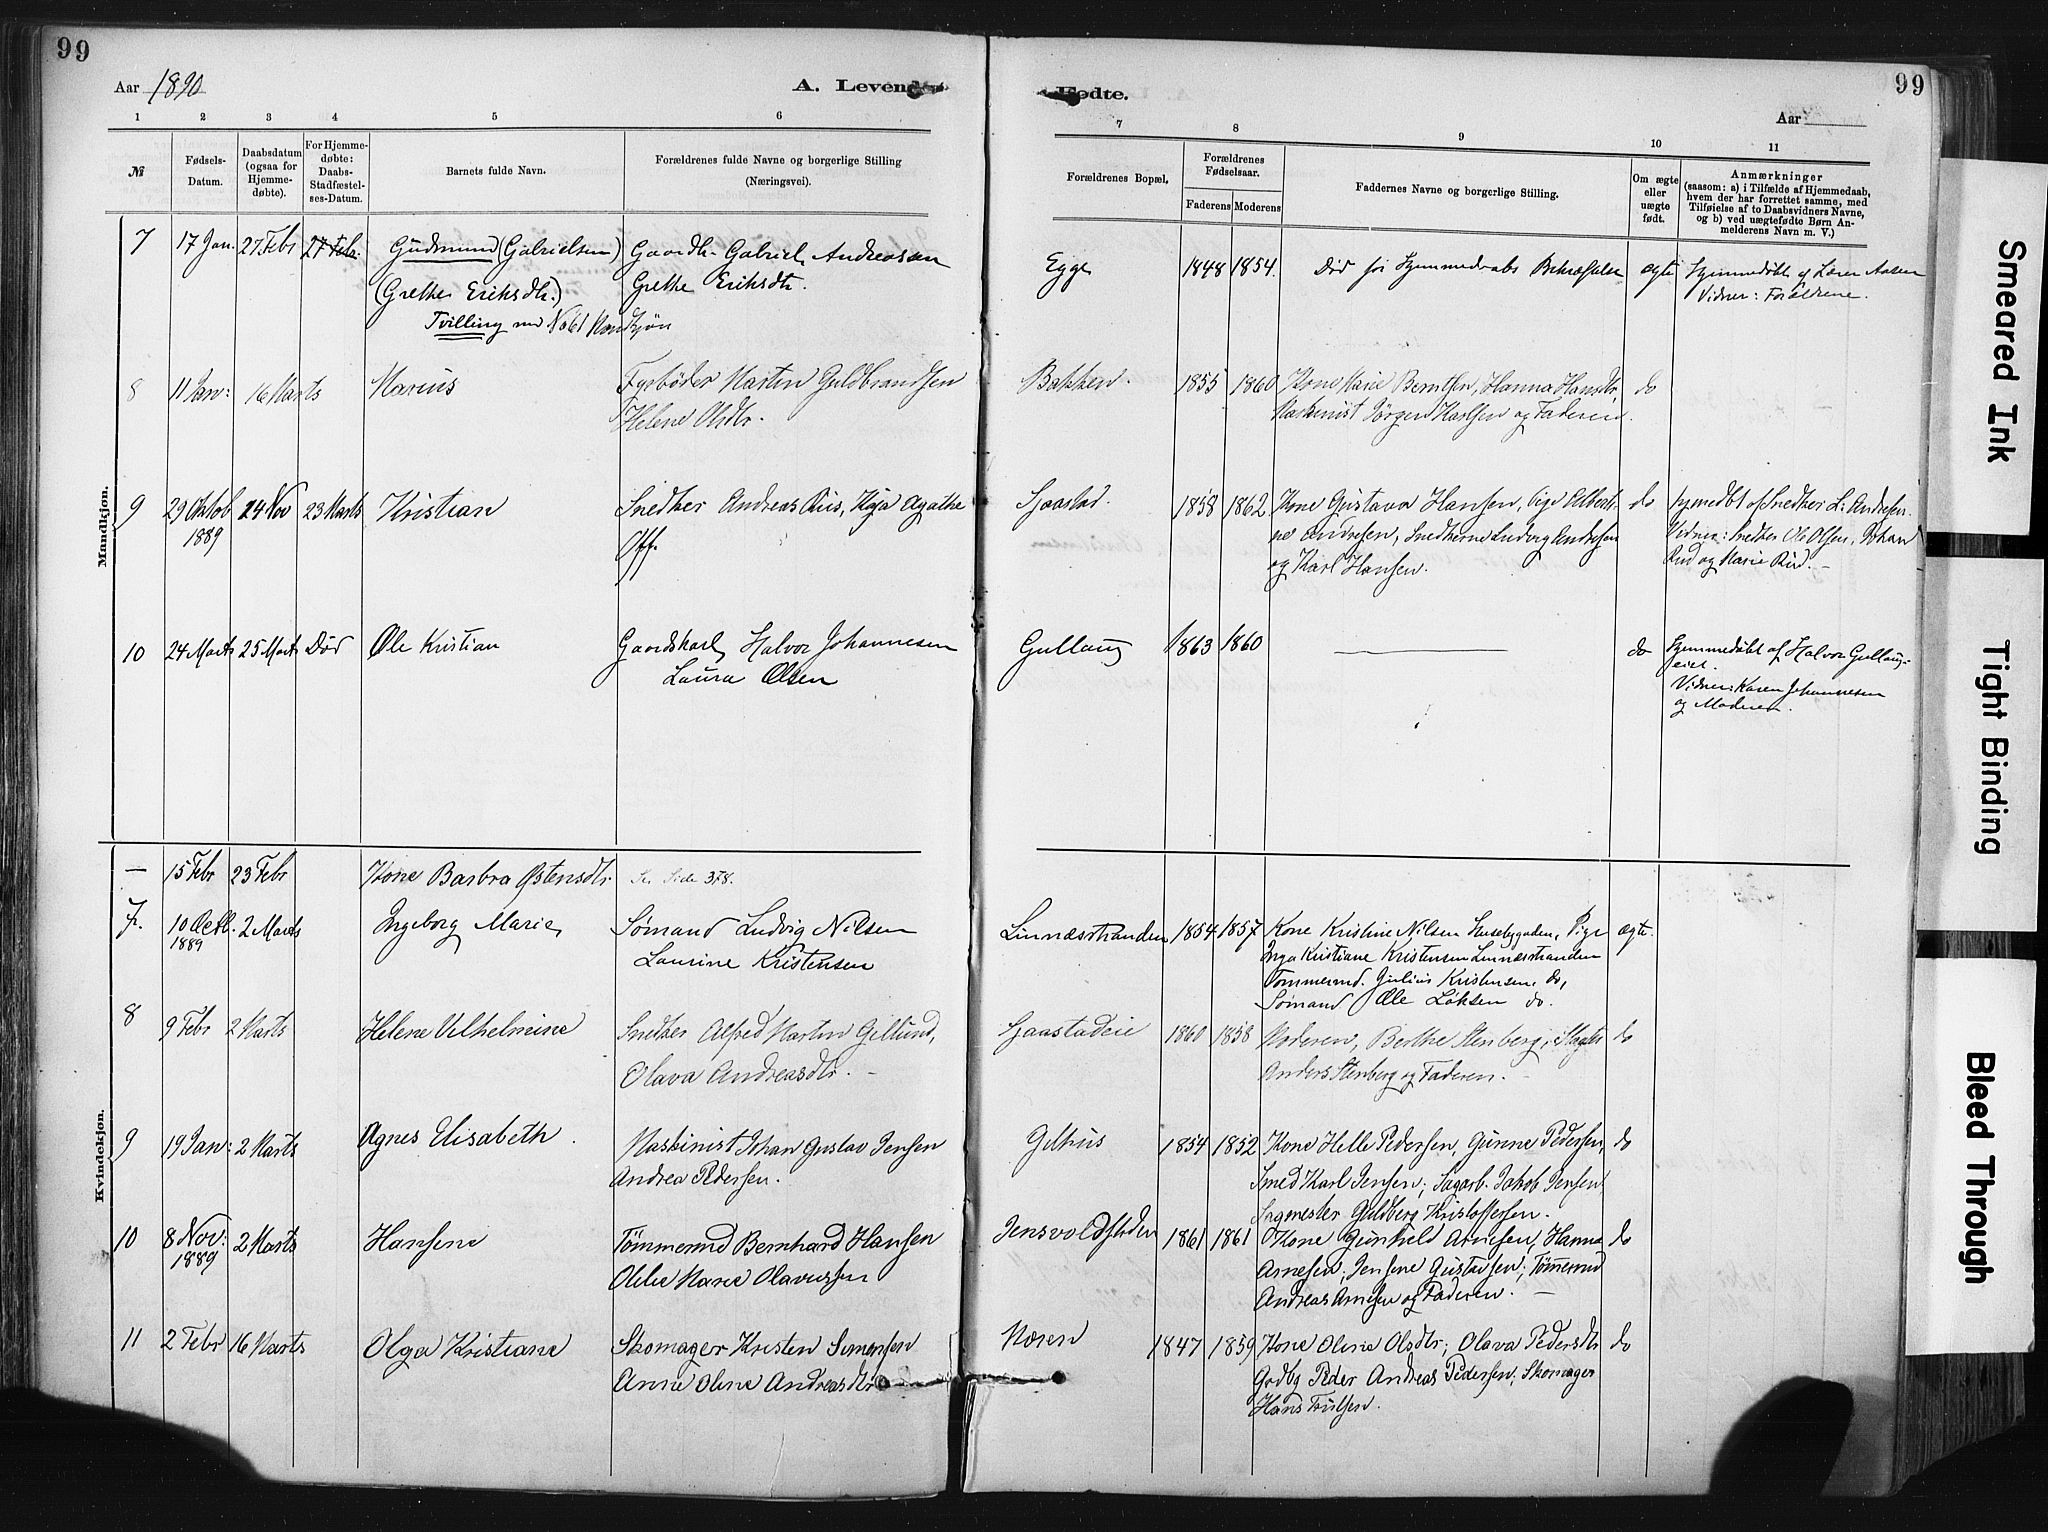 99
Aar 1890
A. Levende
1 2 3 4 5 6
№
Fødsels-Datum.
Daabsdatum (ogsaa for Hjemme-døbte).
For Hjemme-døbte: Daabs-Stadfæstel-ses-Datum.
Barnets fulde Navn.
Forældrenes fulde Navne og borgerlige Stilling
(Næringsvei).
Mandkjøn.
7 17 Jan. 27 Febr 27 Febr. Gudmund (Gabrielsen) Gaardbr. Gabriel Andreassen
(Grethe Eriksdtr.) Grethe Eriksdtr.
Tvilling med No 61 Kvindkjøn
8 11 Jan: 16 Marts Marius Fyrbøder Martin Guldbrandsen
Helene Olsdtr.
9 29 Oktob 24 Nov 23 Marts Kristian Snedker Andreas Riis, Kaja Agathe
1889 Off.
10 24 Marts 25 Marts Død Ole Kristian Gaardskarl Halvor Johannesen
Laura Olsen
Kvindekjøn.
— 15 Febr 23 Febr Kone Barbra Østensdtr. Se Side 378.
7. 10 Octb. 2 Marts Ingeborg Marie Sømand Ludvig Nilsen
1889 Laurine Kristensen
8 9 Febr 2 Marts Helene Vilhelmine Snedker Alfred Martin Gillund,
Olava Andreasdtr. —
9 19 Jan: 2 Marts Agnes Elisabeth. Maskinist Johan Gustav Jensen
Andrea Pedersen.
10 8 Nov: 2 Marts Hansine Tømmermd Bernhard Hansen
1889 Olilie Marie Olavessen
11 2 Febr 16 Marts Olga Kristiane Skomager Kristen Simensen
Anne Oline Andreasdtr
99
Fødte.
Aar
7 8 9 10 11
Forældrenes Bopæl,
Forældrenes Fødselsaar.
Faderens Moderens
Faddernes Navne og borgerlige Stilling.
Om ægte eller uægte født.
Anmærkninger
(saasom: a) i Tilfælde af Hjemmedaab, hvem der har forrettet samme, med Tilføielse af to Daabsvidners Navne, og b) ved uægtefødte Børn Anmelderens Navn m. V.)
Egge 1848 1854. Død før Hjemmedaabs Bekræftelse ægte Hjemmedøbt af Lærer Aasen
Vidner: Forældrene.
Bakken. 1855 1860 Kone Marie Berntsen, Hanna Hansdtr, do
Maskinist Jørgen Karlsen og Faderen.
Gjaastad. 1858 1862 Kone Gustava Hansen, Pige Alberti- do hjemdbt af Snedker L. Andresen.
ne Andresen, Snedkerne Ludvig Andresen Vidner: Snedker Ole Olsen, Johan
og Karl Hansen. Rud og Marie Rud. —
Gullaug 1863 1860 — do Hjemmedøbt af Halvor Gullaug-
eiet.
Vidner: Karen Johannesen
og Moderen.
Linnæsstranden 1854 1857 Kone Kristine Nilsen Husebygaden, Pige ægte.
Inga Kristiane Kristensen Linnæsstranden
Tømmermd. Julius Kristensen do,
Sømand Ole Løksen do.
Gjaastadeie 1860 1858 Moderen, Berthe Stenberg, Slagter do
Anders Stenberg og Faderen. —
Gilhus 1854 1852 Kone Helle Pedersen, Gunne Pedersen, do
Smed Karl Jensen, Sagarb. Jakob Jensen
Sagmester Guldberg Kristoffersen.
Jensvoldsøden 1861 1861 Kone Gunhild Arnesen, Hanna do
Arnesen, Jensine Gustavsen, Tømmermd
Andreas Arnesen og Faderen. —
Moren 1847 1859 Kone Oline Olsdtr; Olava Pedersdtr do
Gaardbr Peder Andreas Pedersen, Skomager
Hans Trulsen.
Smeared Ink
Tight Binding
Bleed Through